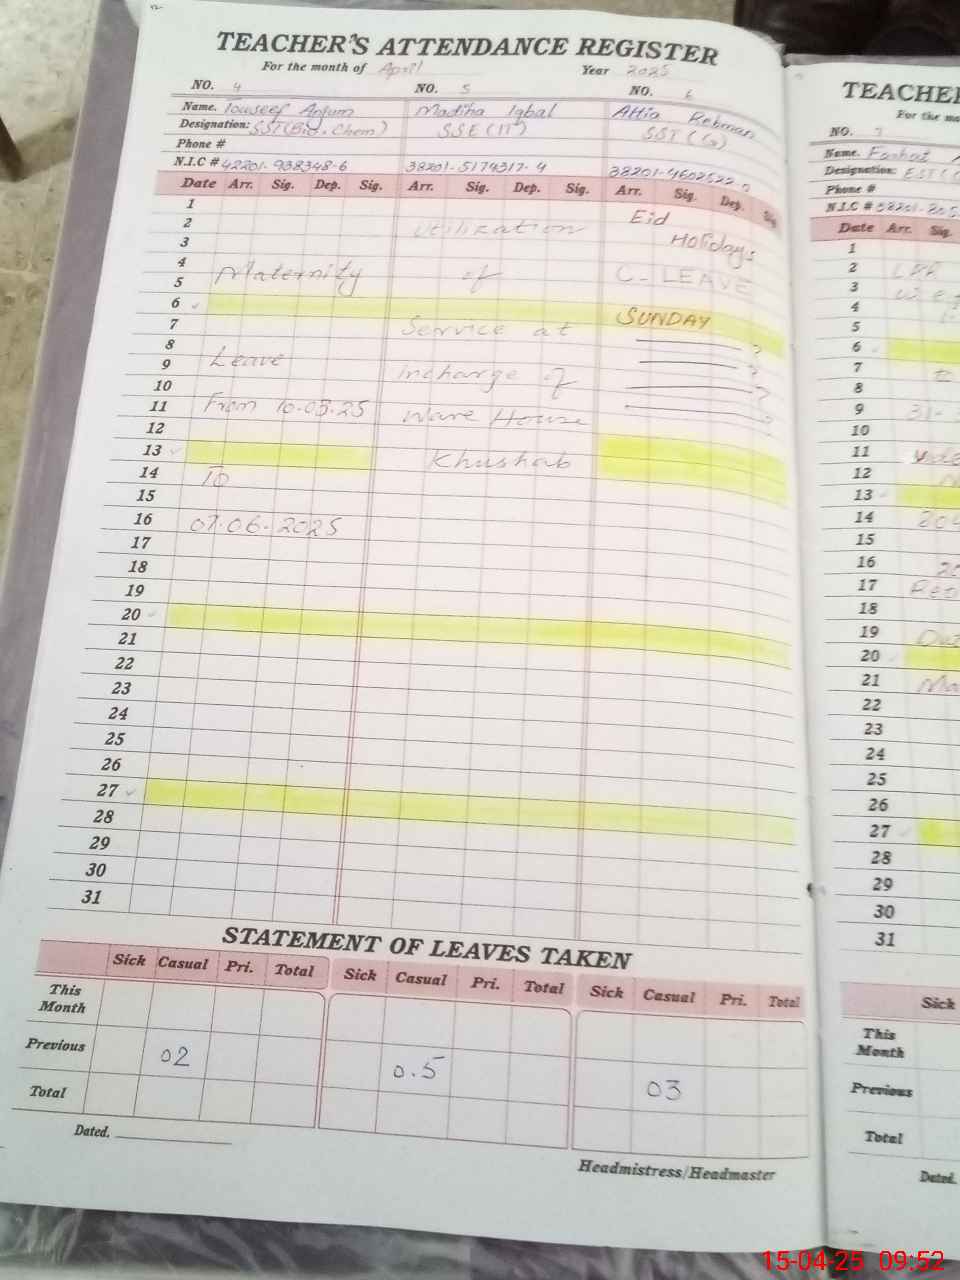 TEACHER'S ATTENDANCE REGISTER
For the month of April Year 2025
NO. 4 NO. 5 NO. 6
Name. Iouseef Anjum Madiha Iqbal Attia Rehman
Designation: SST(Bio.Chem) SSE(IT) SST(G)
Phone #
N.I.C # 42201-938348-6 38201-5174317-4 38201-4602522-
Date Arr. Sig. Dep. Sig. Arr. Sig. Dep. Sig. Arr. Sig. Dep. Sig
1 Eid
2 utilization Holidays
3
4 Maternity of C-LEAVE
5
6 SUNDAY
7 Service at ?
8 Leave ?
9 incharge of ?
10
11 From 10-03-25 Ware House
12
13 Khushab
14 To
15
16 07.06.2025
17
18
19
20
21
22
23
24
25
26
27
28
29
30
31
STATEMENT OF LEAVES TAKEN
Sick Casual Pri. Total Sick Casual Pri. Total Sick Casual Pri. Total
This Month
Previous 02 0.5 03
Total
Dated.
Headmistress/Headmaster
TEACHER
For the mo
NO. 7
Name. Farhat
Designation: EST
Phone #
N.I.C # 38201-805
Date Arr. Sig.
1
2
3
4
5
6
7 to
8
9 31-
10
11
12
13
14 204
15
16 20
17
18
19
20
21 Ma
22
23
24
25
26
27
28
29
30
31
Sick
This Month
Previous
Total
Dated.
15-04-25 09:52